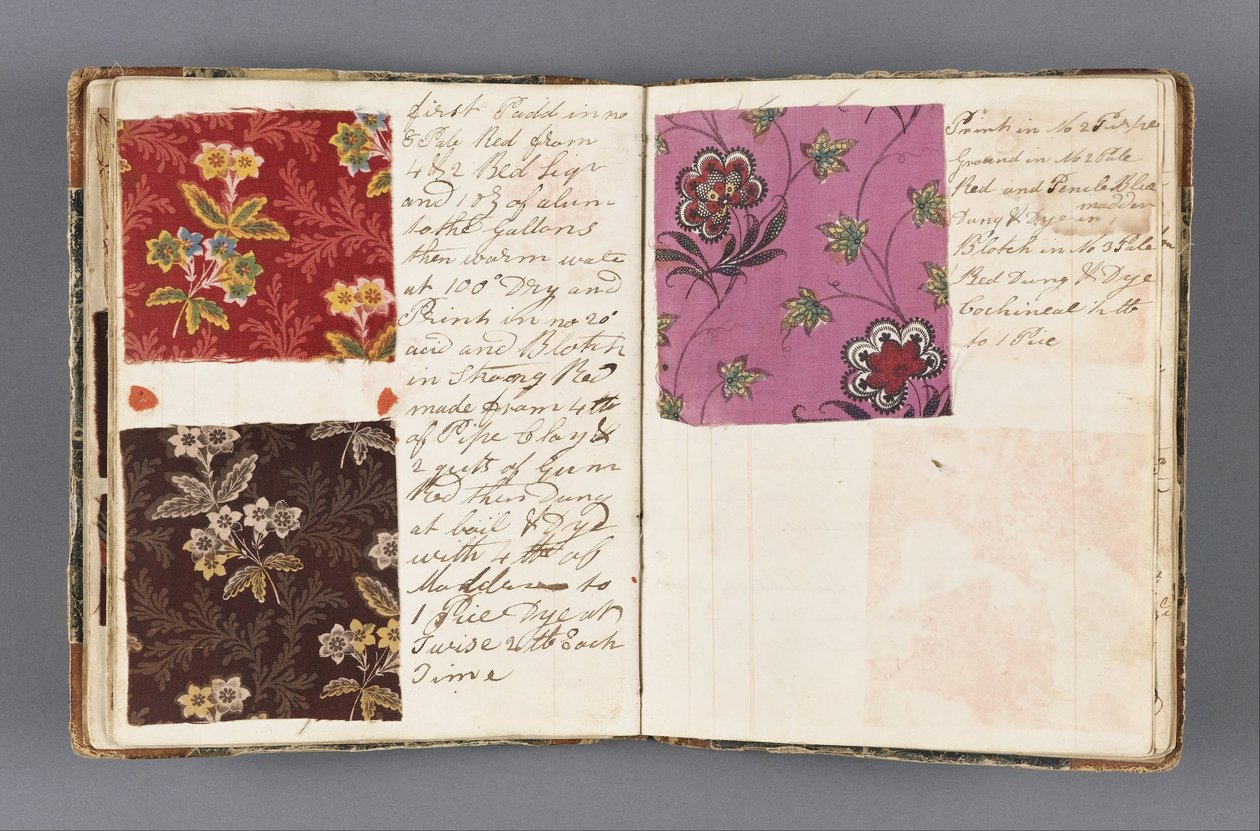 first Padd in no
5 Pale Red from
4 of 2 Red Liqr
and 10 ℥ of alum
to the Gallons
then warm wate
at 100° Dry and
Print in no 20
acid and Blotch
in Strong Red
made from 4 lb
of Pipe Clay &
2 quts of Gum
Red then Dung
at boil & Dye
with 4 lb of
Madder to
1 Pice Dye at
Twise 2 lb Each
Time
Print in No 2 Purple
Ground in No 2 Pale
Red and Pencile Blue
Dung & Dye in madder
Blotch in No 3 Pale
Red Dung & Dye
Cochineal ½ lb
to 1 Pice